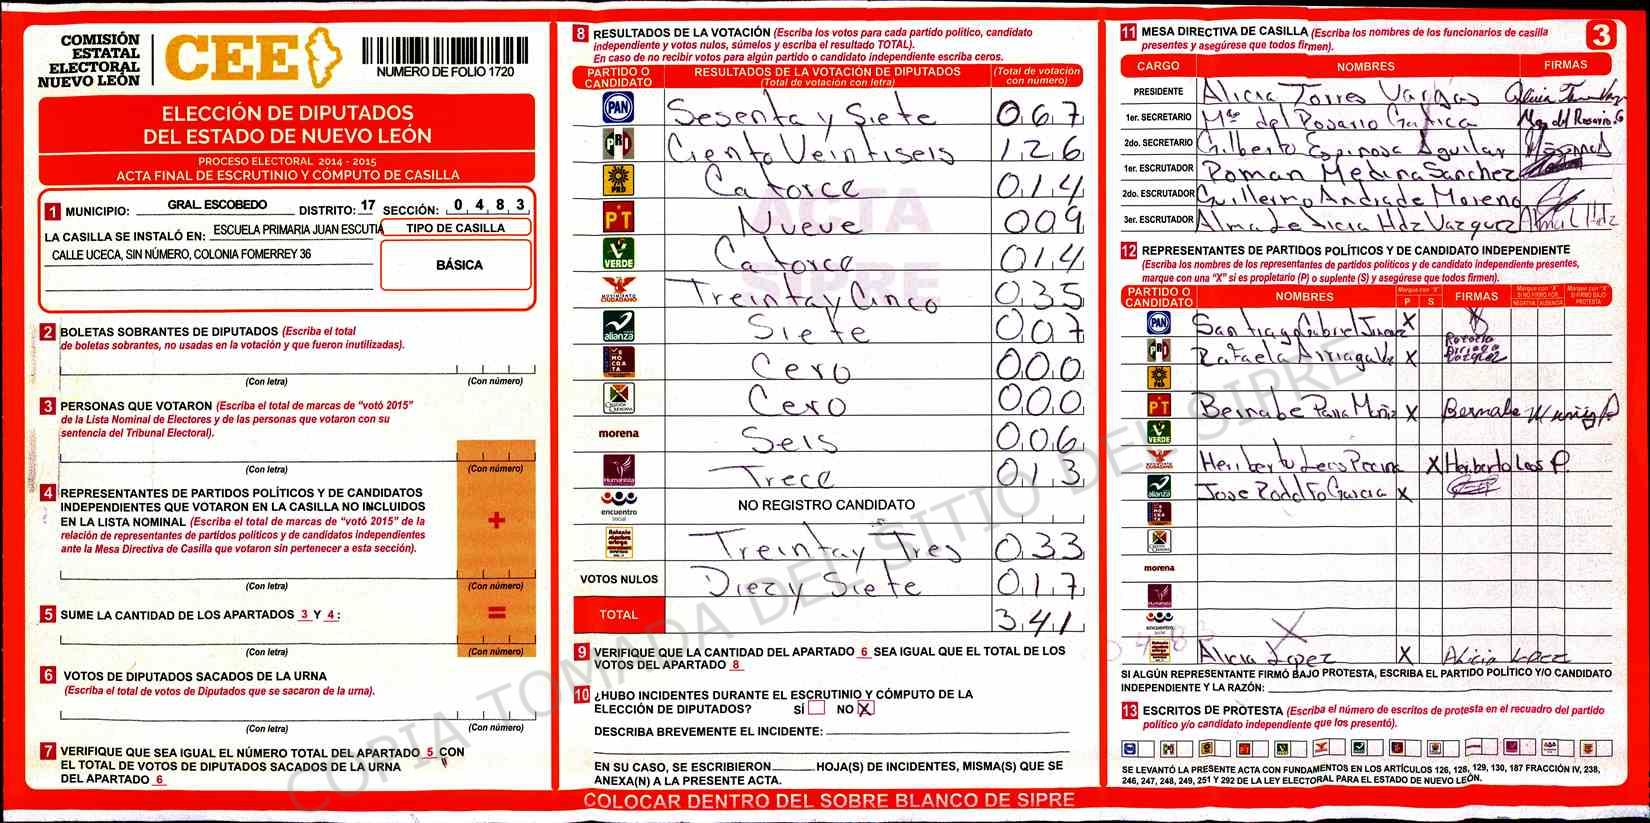 COMISIÓN
ESTATAL
ELECTORAL
NUEVO LEÓN
CEE
NUMERO DE FOLIO 1720
ELECCIÓN DE DIPUTADOS
DEL ESTADO DE NUEVO LEÓN
PROCESO ELECTORAL 2014 - 2015
ACTA FINAL DE ESCRUTINIO Y CÓMPUTO DE CASILLA
1 MUNICIPIO: GRAL. ESCOBEDO DISTRITO: 17 SECCIÓN: 0 4 8 3
LA CASILLA SE INSTALÓ EN: ESCUELA PRIMARIA JUAN ESCUTIA
CALLE UCECA, SIN NÚMERO, COLONIA FOMERREY 36
TIPO DE CASILLA
BÁSICA
2 BOLETAS SOBRANTES DE DIPUTADOS (Escriba el total
de boletas sobrantes, no usadas en la votación y que fueron inutilizadas).
(Con letra) (Con número)
3 PERSONAS QUE VOTARON (Escriba el total de marcas de "votó 2015"
de la Lista Nominal de Electores y de las personas que votaron con su
sentencia del Tribunal Electoral).
(Con letra) (Con número)
4 REPRESENTANTES DE PARTIDOS POLÍTICOS Y DE CANDIDATOS
INDEPENDIENTES QUE VOTARON EN LA CASILLA NO INCLUIDOS
EN LA LISTA NOMINAL (Escriba el total de marcas de "votó 2015" de la
relación de representantes de partidos políticos y de candidatos independientes
ante la Mesa Directiva de Casilla que votaron sin pertenecer a esta sección).
+
(Con letra) (Con número)
5 SUME LA CANTIDAD DE LOS APARTADOS 3 Y 4 :
=
(Con letra) (Con número)
6 VOTOS DE DIPUTADOS SACADOS DE LA URNA
(Escriba el total de votos de Diputados que se sacaron de la urna).
(Con letra) (Con número)
7 VERIFIQUE QUE SEA IGUAL EL NÚMERO TOTAL DEL APARTADO 5 CON
EL TOTAL DE VOTOS DE DIPUTADOS SACADOS DE LA URNA
DEL APARTADO 6
8 RESULTADOS DE LA VOTACIÓN (Escriba los votos para cada partido político, candidato
independiente y votos nulos, súmelos y escriba el resultado TOTAL).
En caso de no recibir votos para algún partido o candidato independiente escriba ceros.
PARTIDO O CANDIDATO RESULTADOS DE LA VOTACIÓN DE DIPUTADOS (Total de votación con letra) (Total de votación con número)
PAN Sesenta y Siete 067
PRI Ciento Veintiseis 126
PRD Catorce 014
PT Nueve 009
VERDE Catorce 014
MOVIMIENTO CIUDADANO Treinta y Cinco 035
alianza Siete 007
DEMOCRATA Cero 000
CRUZADA CIUDADANA Cero 000
morena Seis 006
Humanista Trece 013
encuentro social NO REGISTRO CANDIDATO
Treinta y Tres 033
VOTOS NULOS Diez y Siete 017
TOTAL 341
ACTA
SIPRE
9 VERIFIQUE QUE LA CANTIDAD DEL APARTADO 6 SEA IGUAL QUE EL TOTAL DE LOS
VOTOS DEL APARTADO 8
10 ¿HUBO INCIDENTES DURANTE EL ESCRUTINIO Y CÓMPUTO DE LA
ELECCIÓN DE DIPUTADOS? SÍ NO X
DESCRIBA BREVEMENTE EL INCIDENTE:
EN SU CASO, SE ESCRIBIERON HOJA(S) DE INCIDENTES, MISMA(S) QUE SE
ANEXA(N) A LA PRESENTE ACTA.
COLOCAR DENTRO DEL SOBRE BLANCO DE SIPRE
11 MESA DIRECTIVA DE CASILLA (Escriba los nombres de los funcionarios de casilla
presentes y asegúrese que todos firmen).
3
CARGO NOMBRES FIRMAS
PRESIDENTE Alicia Torres Vargas
1er. SECRETARIO Ma del Rosario Gatica
2do. SECRETARIO Gilberto Espinosa Aguilar
1er. ESCRUTADOR Roman Medina Sanchez
2do. ESCRUTADOR Guillermo Andrade Moreno
3er. ESCRUTADOR Alma Delicia Hdz Vazquez
12 REPRESENTANTES DE PARTIDOS POLÍTICOS Y DE CANDIDATO INDEPENDIENTE
(Escriba los nombres de los representantes de partidos políticos y de candidato independiente presentes,
marque con una "X" si es propietario (P) o suplente (S) y asegúrese que todos firmen).
PARTIDO O CANDIDATO NOMBRES Marque con "X" P S FIRMAS Marque con "X" SI NO FIRMÓ POR: NEGATIVA AUSENCIA Marque con "X" SI FIRMÓ BAJO PROTESTA
PAN Santiago Gabriel X
PRI Rafaela Arriaga X
PRD
PT Bernabe Parra Muñiz X Bernabe Muñiz P
VERDE
Heriberto Leos X Heriberto Leos P.
alianza Jose Rodolfo Garcia X
morena
Humanista
encuentro social
Alicia Lopez X Alicia Lopez
SI ALGÚN REPRESENTANTE FIRMÓ BAJO PROTESTA, ESCRIBA EL PARTIDO POLÍTICO Y/O CANDIDATO
INDEPENDIENTE Y LA RAZÓN:
13 ESCRITOS DE PROTESTA (Escriba el número de escritos de protesta en el recuadro del partido
político y/o candidato independiente que los presentó).
SE LEVANTÓ LA PRESENTE ACTA CON FUNDAMENTOS EN LOS ARTÍCULOS 126, 128, 129, 130, 187 FRACCIÓN IV, 238,
246, 247, 248, 249, 251 Y 292 DE LA LEY ELECTORAL PARA EL ESTADO DE NUEVO LEÓN.
COPIA TOMADA DEL SITIO DEL SIPRE